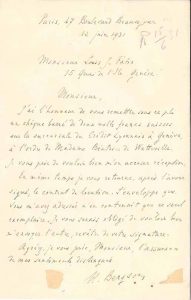 Paris, 47 Boulevard Beauséjour
12 juin 1931
Monsieur Louis J. Fatio
15 Quai de l'Ile Genève
Monsieur,
J'ai l'honneur de vous remettre sous ce pli
un chèque barré de deux mille francs suisses
sur la succursale du Crédit Lyonnais à Genève
à l'ordre de Madame Benten de Watteville.
Je vous prie de vouloir bien m'en accuser réception.
En même temps je vous retourne, après l'avoir
signé, le contrat de location. L'enveloppe que
vous m'avez adressée n'en contenait que ce seul
exemplaire. Je vous serais obligé de vouloir bien
m'envoyer l'autre, revêtu de votre signature.
Agréez, je vous prie, Monsieur, l'assurance
de mes sentiments distingués
H. Bergson